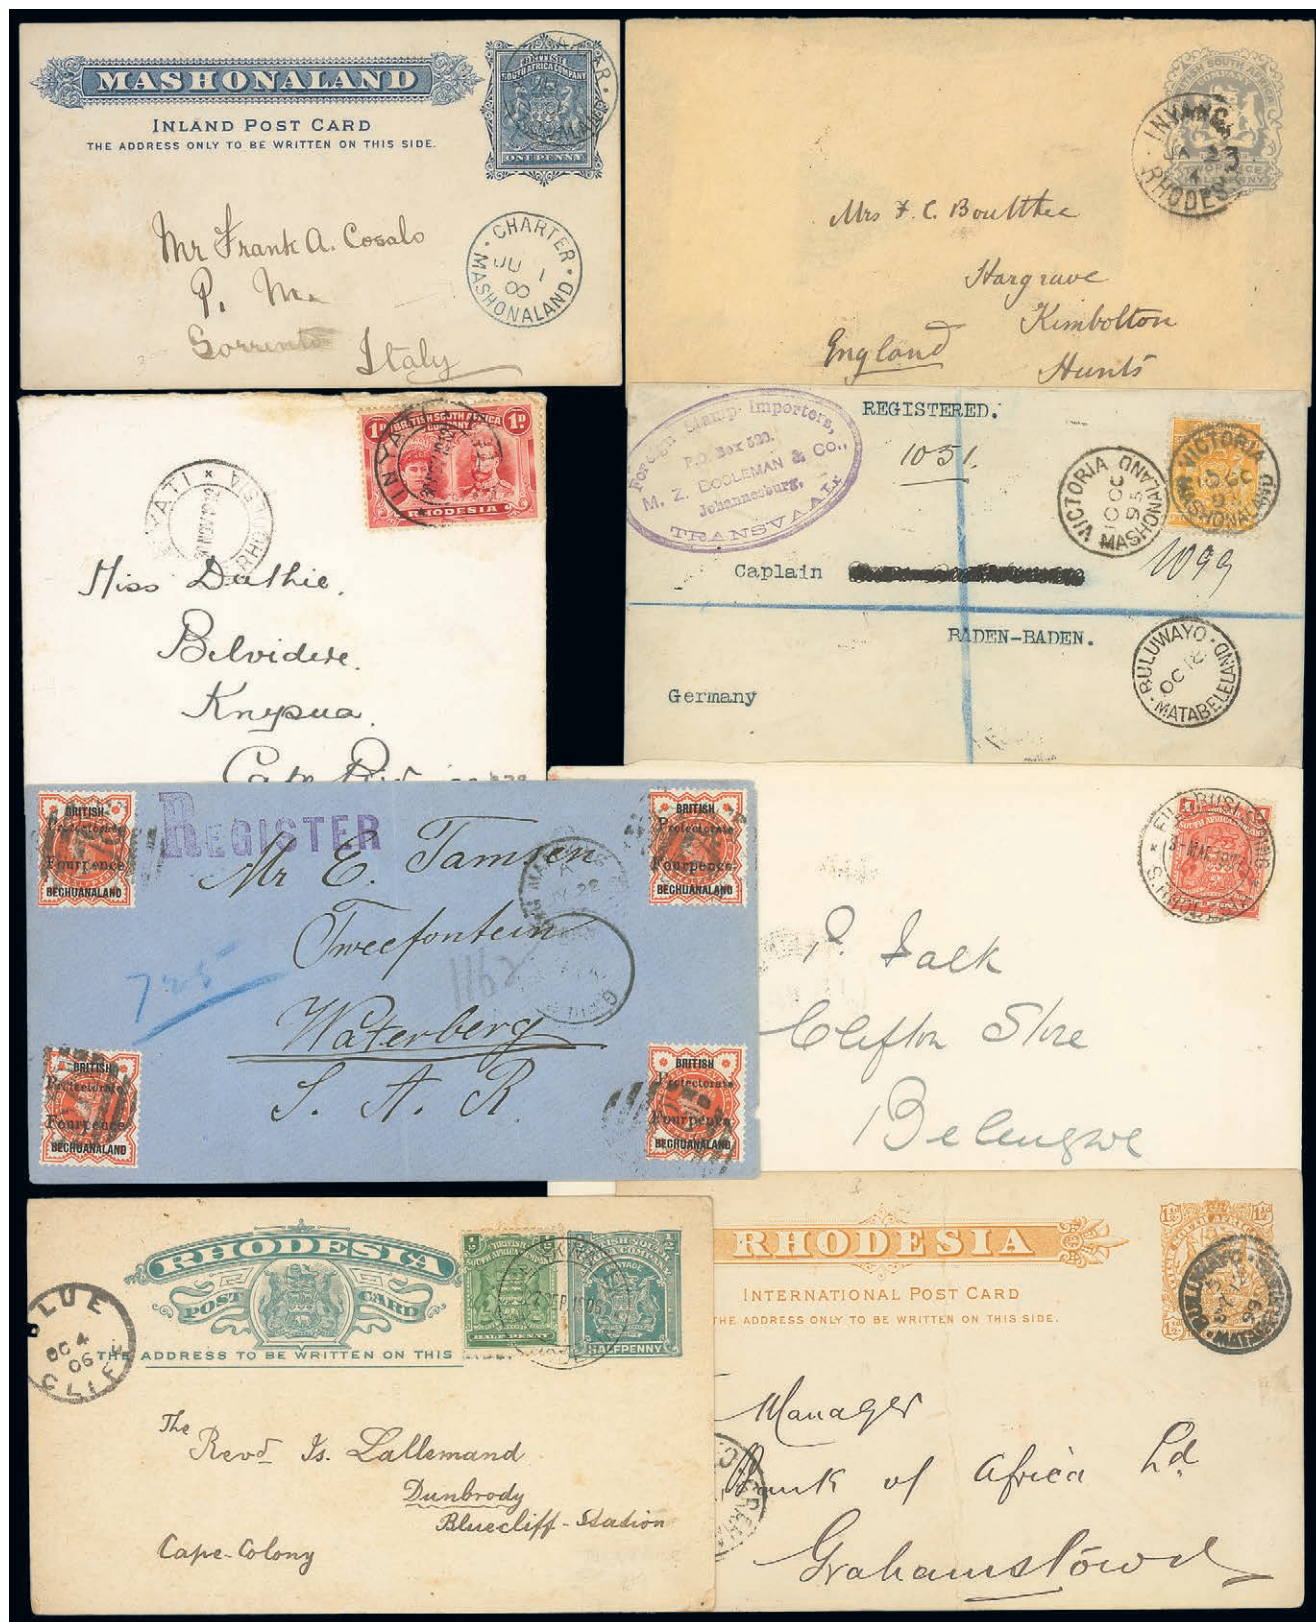 MASHONALAND
INLAND POST CARD
THE ADDRESS ONLY TO BE WRITTEN ON THIS SIDE.
SOUTH AFRICA COMPANY
ONE PENNY
Mr Frank A. Cosalo
P.
Sorrento
Italy
CHARTER
JU 1
00
MASHONALAND
BRITISH SOUTH AFRICA
INYANG
JA 23
RHODES
Mrs F. C. Boultbee
Hargrave
Kimbolton
England
Hunts
1D BRITISH SOUTH AFRICA 1D
COMPANY
RHODESIA
INYATI
Miss Duthie.
Belvidere.
Knysna.
Foreign Stamp Importers,
P.O. Box 529.
M. Z. BOOLEMAN & CO.,
Johannesburg,
TRANSVAAL
REGISTERED.
1051.
VICTORIA
10 OC
95
MASHONALAND
VICTORIA
10 OC
MASHONALAND
Captain
1099
BADEN-BADEN.
BULUWAYO
OC 18
MATABELELAND
Germany
BRITISH
Protectorate
Fourpence
BECHUANALAND
REGISTER
BRITISH
Protectorate
Fourpence
BECHUANALAND
Mr E. Tamsen
Tweefontein
1162
725
Waterberg
S. A. R.
BRITISH
Protectorate
Fourpence
BECHUANALAND
BRITISH
Protectorate
Fourpence
BECHUANALAND
P. Falk
Clifton Store
Belengwe
RHODESIA
POST CARD
THE ADDRESS TO BE WRITTEN ON THIS
HALF PENNY
POSTAGE
HALFPENNY
BLUE
OC 4
06
CLIFF
The
Revd Js. Lallemand
Dunbrody
Bluecliff-Station
Cape-Colony
RHODESIA
INTERNATIONAL POST CARD
THE ADDRESS ONLY TO BE WRITTEN ON THIS SIDE.
1½ 1½
BULUWAYO
99
Manager
Bank of Africa Ld
Grahamstown